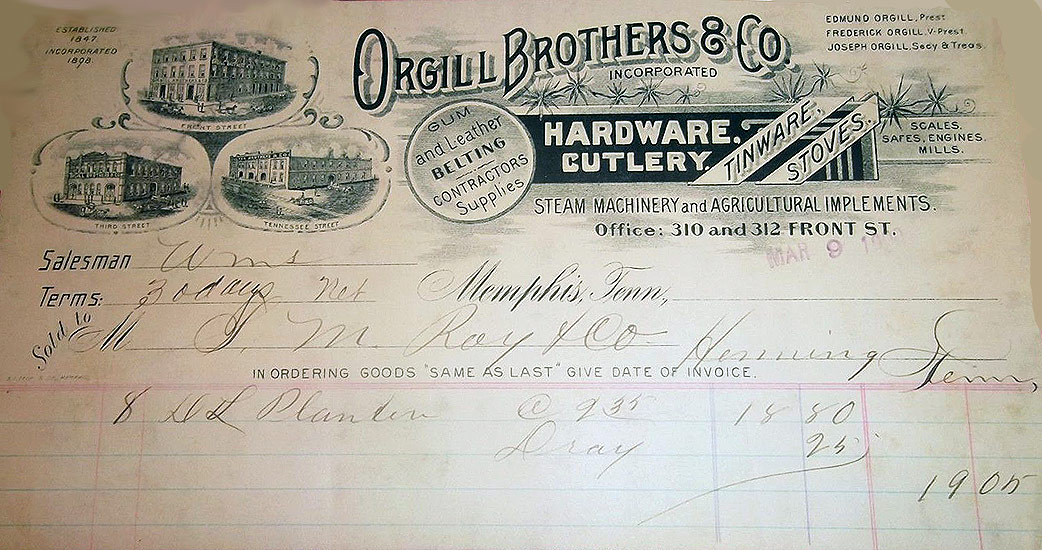 ESTABLISHED
1847.
INCORPORATED
1898.
FRONT STREET
THIRD STREET
TENNESSEE STREET
ORGILL BROTHERS & CO.
INCORPORATED
EDMUND ORGILL, Prest
FREDERICK ORGILL, V-Prest
JOSEPH ORGILL, Secy & Treas.
GUM
and Leather
BELTING
CONTRACTORS
Supplies
HARDWARE.
CUTLERY.
TINWARE.
STOVES.
SCALES,
SAFES, ENGINES.
MILLS.
STEAM MACHINERY and AGRICULTURAL IMPLEMENTS.
Office: 310 and 312 FRONT ST.
MAR 9
Salesman Wms
Terms: 30 days Net Memphis, Tenn,
Sold to M Ray & Co Henning Tenn,
IN ORDERING GOODS "SAME AS LAST" GIVE DATE OF INVOICE.
8 @ 9 35 18 80
Dray 25
19 05